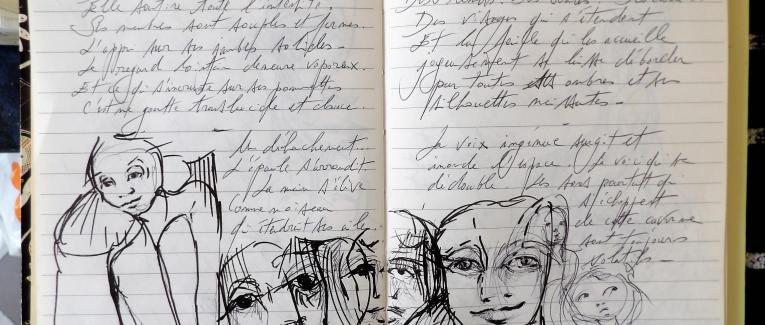 Ses membres sont souples et fermes.
L'appui sur ses jambes solides.
Le regard lointain demeure vaporeux.
Et ce qui s'incruste sur ses pommettes
C'est une goutte translucide et douce.
Un détachement...
L'épaule s'arrondit.
La main s'élève
Comme un oiseau
qui étendrait ses ailes.
Des visages qui s'étendent
Et la feuille qui les accueille
joyeusement se laisse déborder
pour toutes ombres et ses
silhouettes naissantes.
La voix ingénue surgit et
inonde l'espace. La voici qui se
dédouble. Les sons pourtant qui
s'échappent
de cette caverne
sont toujours
volatils.